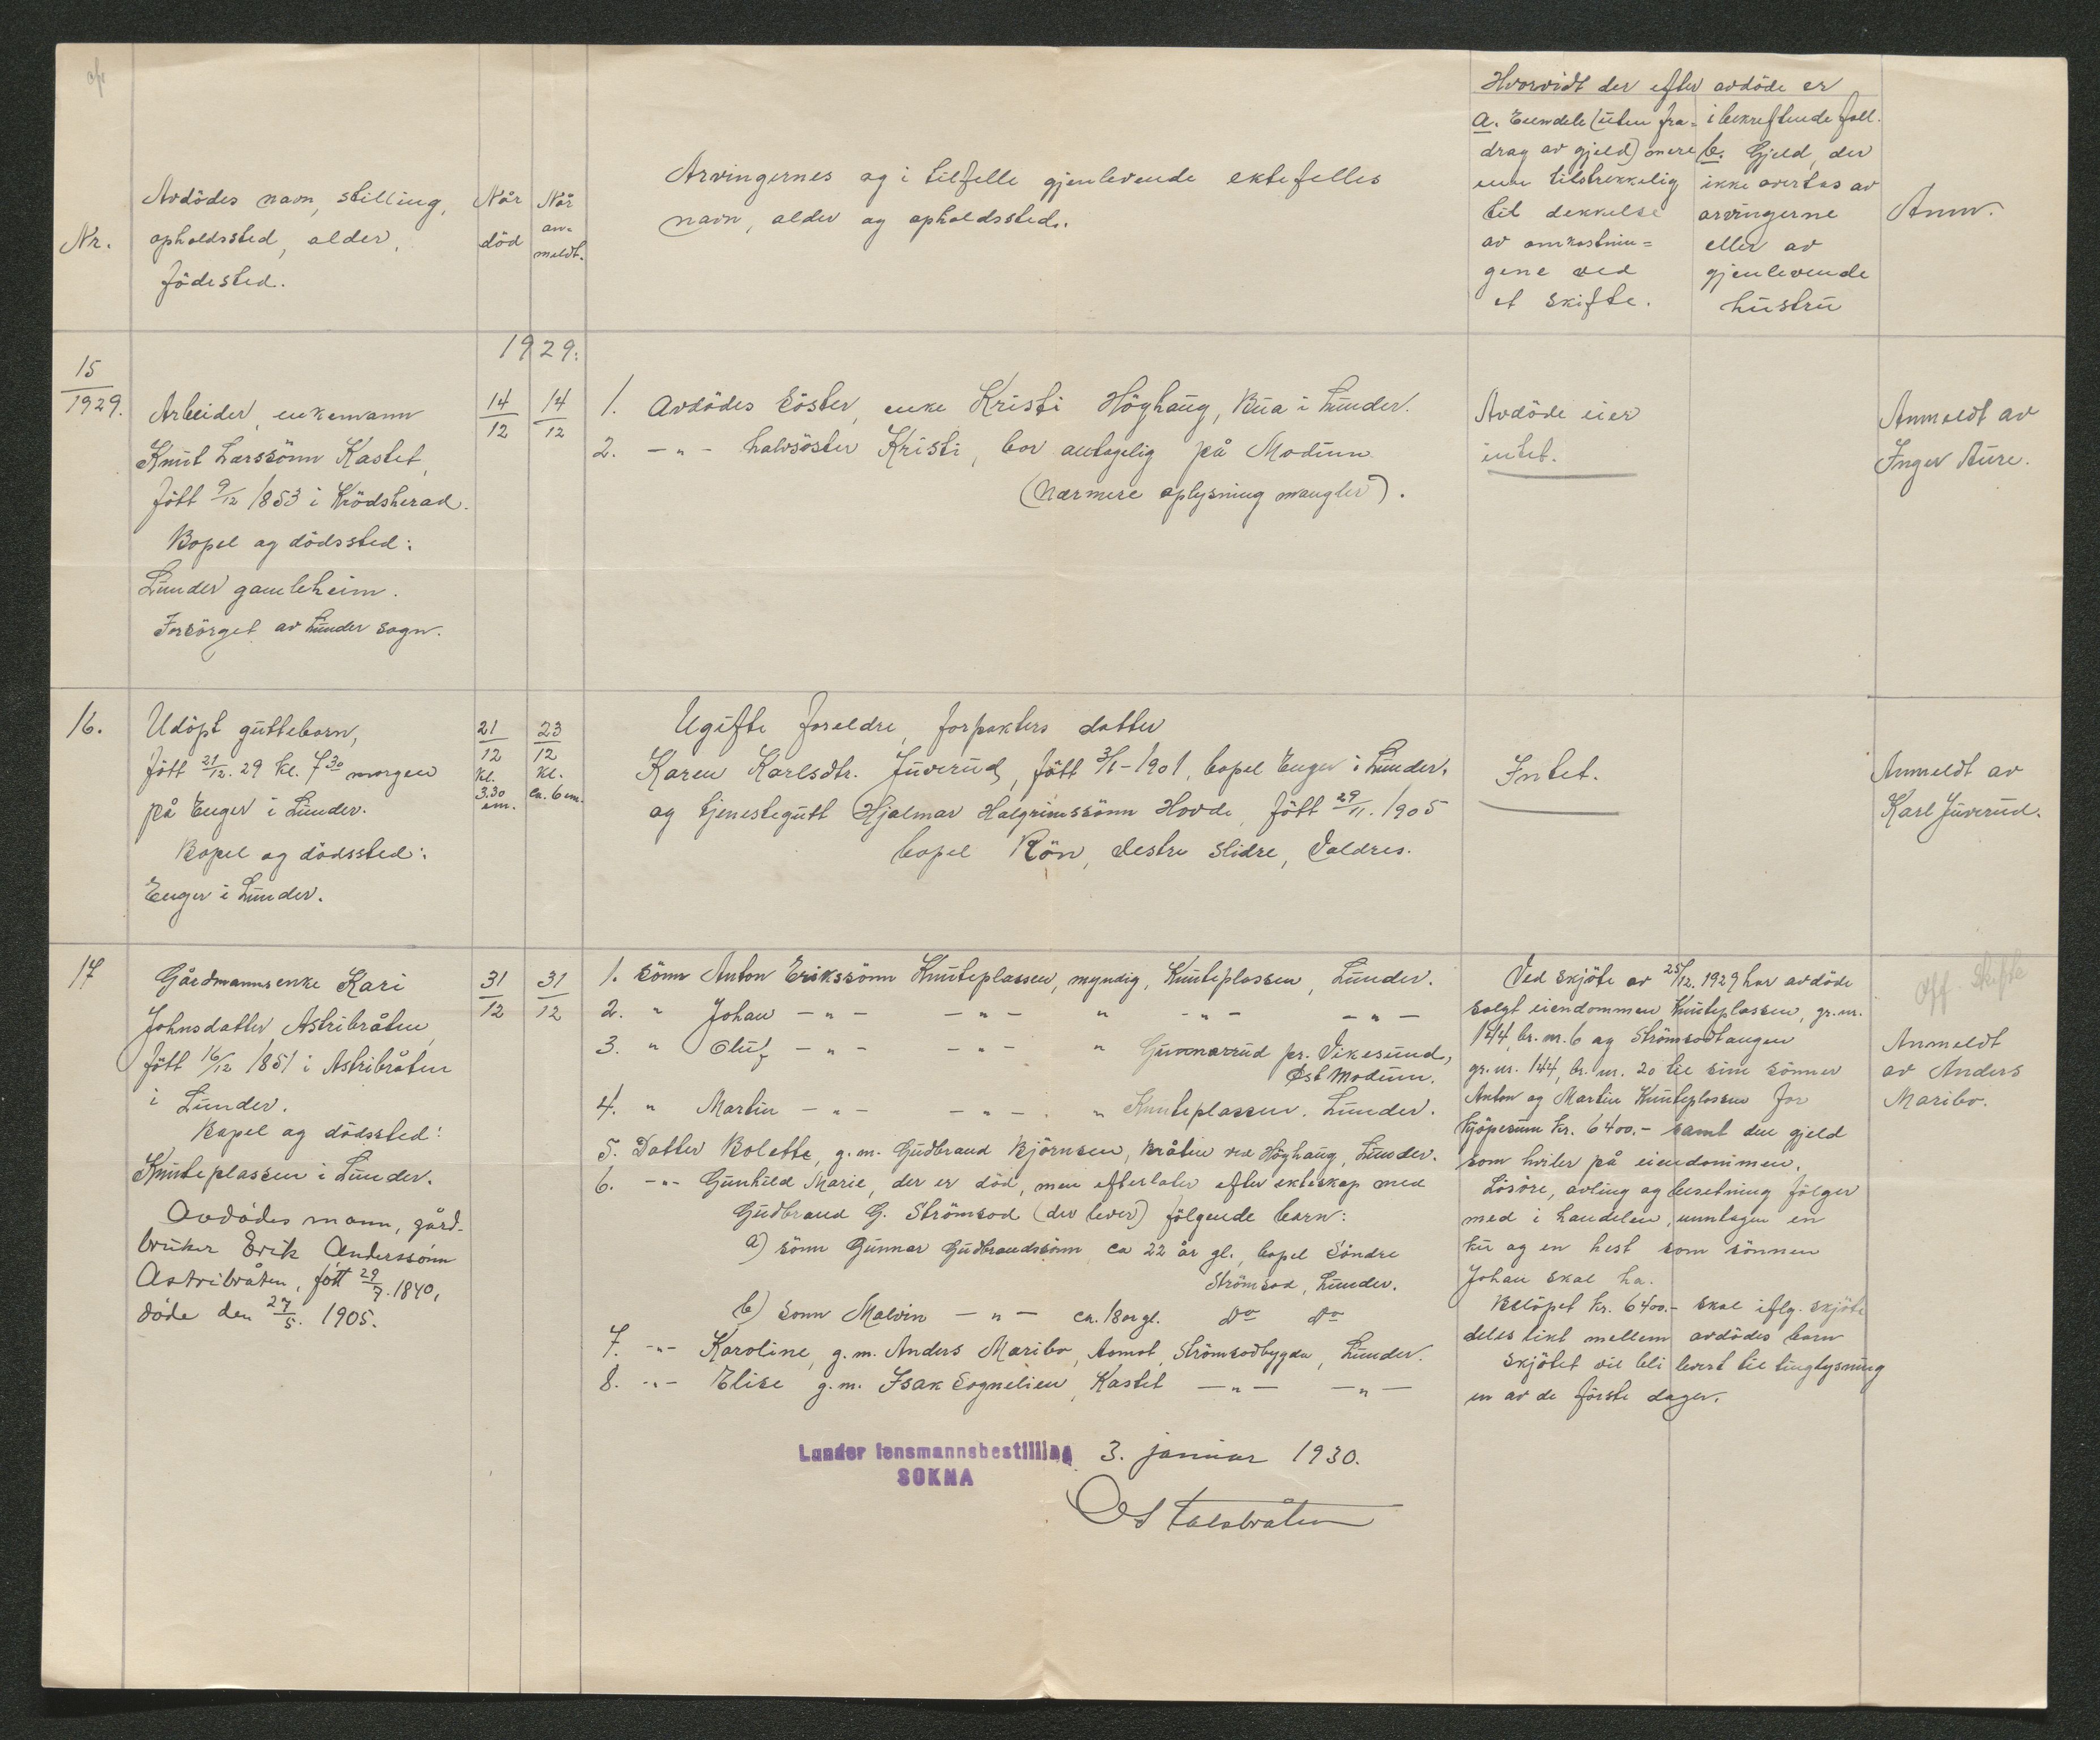 Nr.
Avdödes navn, stilling,
opholdssted, alder,
födested.
Når
död
Når
an-
meldt.
Arvingernes og i tilfelle gjenlevende ektefelles
navn, alder og opholdssted.
Hvorvidt der efter avdöde er
a. Eiendele (uten fra-
drag av gjeld) mere
enn tilstrekkelig
til dekkelse
av omkostnin=
gene ved
et skifte.
i bekreftende fall.
b. Gjeld, der
ikke overtas av
arvingerne
eller av
gjenlevende
hustru
Anm.
1929.
15
1929.
Arbeider, enkemann
Knut Larssönn Kastet,
fött 9/12 1853 i Krödsherad.
Bopel og dödssted:
Lunder gamleheim.
Forsörget av Lunder sogn.
14/12
14/12
1. Avdödes söster, enke Kristi Höghaug, Bua i Lunder.
2. -"- halvsöster Kristi, bor antagelig på Modum
(nærmere oplysning mangler).
Avdöde eier
intet.
Anmeldt av
Inger Aure.
16.
Udöpt guttebarn,
fött 21/12. 29 kl. 7 30 morgen
på Enger i Lunder.
Bopel og dödssted:
Enger i Lunder.
21/12
kl.
3.30
em.
23/12
kl.
ca. 6 em.
Ugifte foreldre, forpakters datter
Karen Karlsdtr. Juverud, fött 3/1-1901, bopel Enger i Lunder,
og tjenestegutt Hjalmar Halgrimssönn Hovde, fött 29/11. 1905
bopel Rön, Vestre Slidre, Valdres.
Intet.
Anmeldt av
Karl Juverud.
17
Gårdmannsenke Kari
Johnsdatter Astribråten,
fött 16/12 1851 i Astribråten
i Lunder.
Bopel og dödssted:
Knuteplassen i Lunder.
Avdödes mann, gård-
bruker Erik Anderssönn
Astribråten, fött 29/7. 1840,
döde den 27/5. 1905.
31/12
31/12
1. Sönn Anton Erikssönn Knuteplassen, myndig, Knuteplassen, Lunder.
2. " Johan -"- -"- " -"- -"-
3. " Oluf -"- -"- " Gunnarrud pr. Vikesund,
Øst Modum.
4. " Martin -"- -"- " Knuteplassen. Lunder.
5. Datter Bolette, g.m. Gudbrand Björnsen, Bråten ved Höghaug, Lunder.
6. -"- Gunhild Marie, der er död, men efterlater efter ekteskap med
Gudbrand G. Strömsod (der lever) fölgende barn:
a) sönn Gunnar Gudbrandssönn ca 22 år gl., bopel Söndre
Strömsod, Lunder.
b) sonn Malvin -"- ca. 18 år gl. do do
7. -"- Karoline, g.m. Anders Maribo, Aamot, Strömsodbygda, Lunder.
8. -"- Elise g.m. Isak Sognelien, Kastet -"- -"-
Ved skjöte av 25/12. 1929 har avdöde
solgt eiendommen Knuteplassen, gr. nr.
144, br. nr. 6 og Strömsodtangen
gr. nr. 144, br. nr. 20 til sine sönner
Anton og Martin Knuteplassen for
kjöpesum kr. 6400.- samt den gjeld
som hviler på eiendommen.
Lösöre, avling og besetning fölger
med i handelen, unntagen en
ku og en hest som sönnen
Johan skal ha.
Belöpet kr. 6400.- skal iflg. skjöte
deles likt mellem avdödes barn
Skjötet vil bli levert til tinglysning
en av de förste dager.
Off. Skifte
Anmeldt
av Anders
Maribo.
Lunder lensmannsbestilling 3. januar 1930.
SOKNA